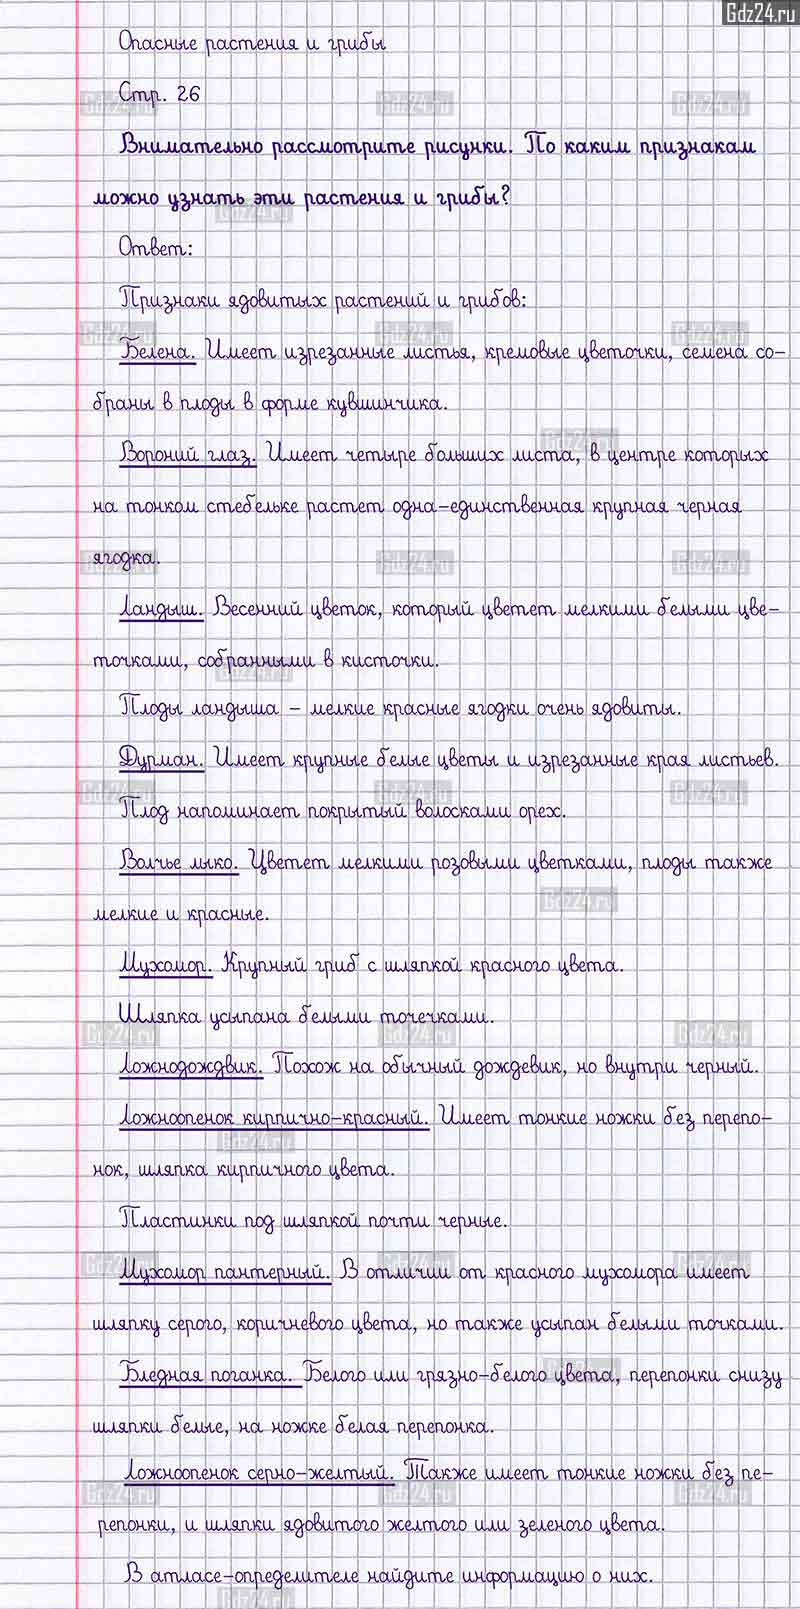 Gdz24.ru
Опасные растения и грибы
Стр. 26
Внимательно рассмотрите рисунки. По каким признакам
можно узнать эти растения и грибы?
Ответ:
Признаки ядовитых растений и грибов:
Белена. Имеет изрезанные листья, кремовые цветочки, семена со-
браны в плоды в форме кувшинчика.
Вороний глаз. Имеет четыре больших листа, в центре которых
на тонком стебельке растет одна-единственная крупная черная
ягодка.
Ландыш. Весенний цветок, который цветет мелкими белыми цве-
точками, собранными в кисточки.
Плоды ландыша – мелкие красные ягодки очень ядовиты.
Дурман. Имеет крупные белые цветы и изрезанные края листьев.
Плод напоминает покрытый волосками орех.
Волчье лыко. Цветет мелкими розовыми цветками, плоды также
мелкие и красные.
Мухомор. Крупный гриб с шляпкой красного цвета.
Шляпка усыпана белыми точечками.
Ложнодождвик. Похож на обычный дождевик, но внутри черный.
Ложноопенок кирпично-красный. Имеет тонкие ножки без перепо-
нок, шляпка кирпичного цвета.
Пластинки под шляпкой почти черные.
Мухомор пантерный. В отличии от красного мухомора имеет
шляпку серого, коричневого цвета, но также усыпан белыми точками.
Бледная поганка. Белого или грязно-белого цвета, перепонки снизу
шляпки белые, на ножке белая перепонка.
Ложноопенок серно-желтый. Также имеет тонкие ножки без пе-
репонки, и шляпки ядовитого желтого или зеленого цвета.
В атласе-определителе найдите информацию о них.